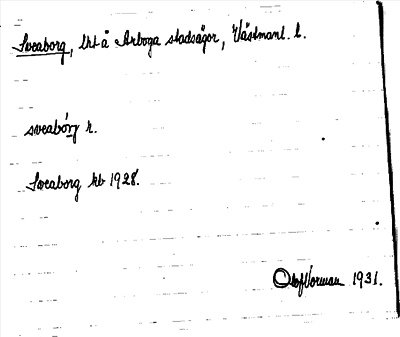 Sveaborg, lht å Arboga stadsägor, Västmanl. l.
sveabórj r.
Sveaborg kb 1928.
Olof Norman 1931.